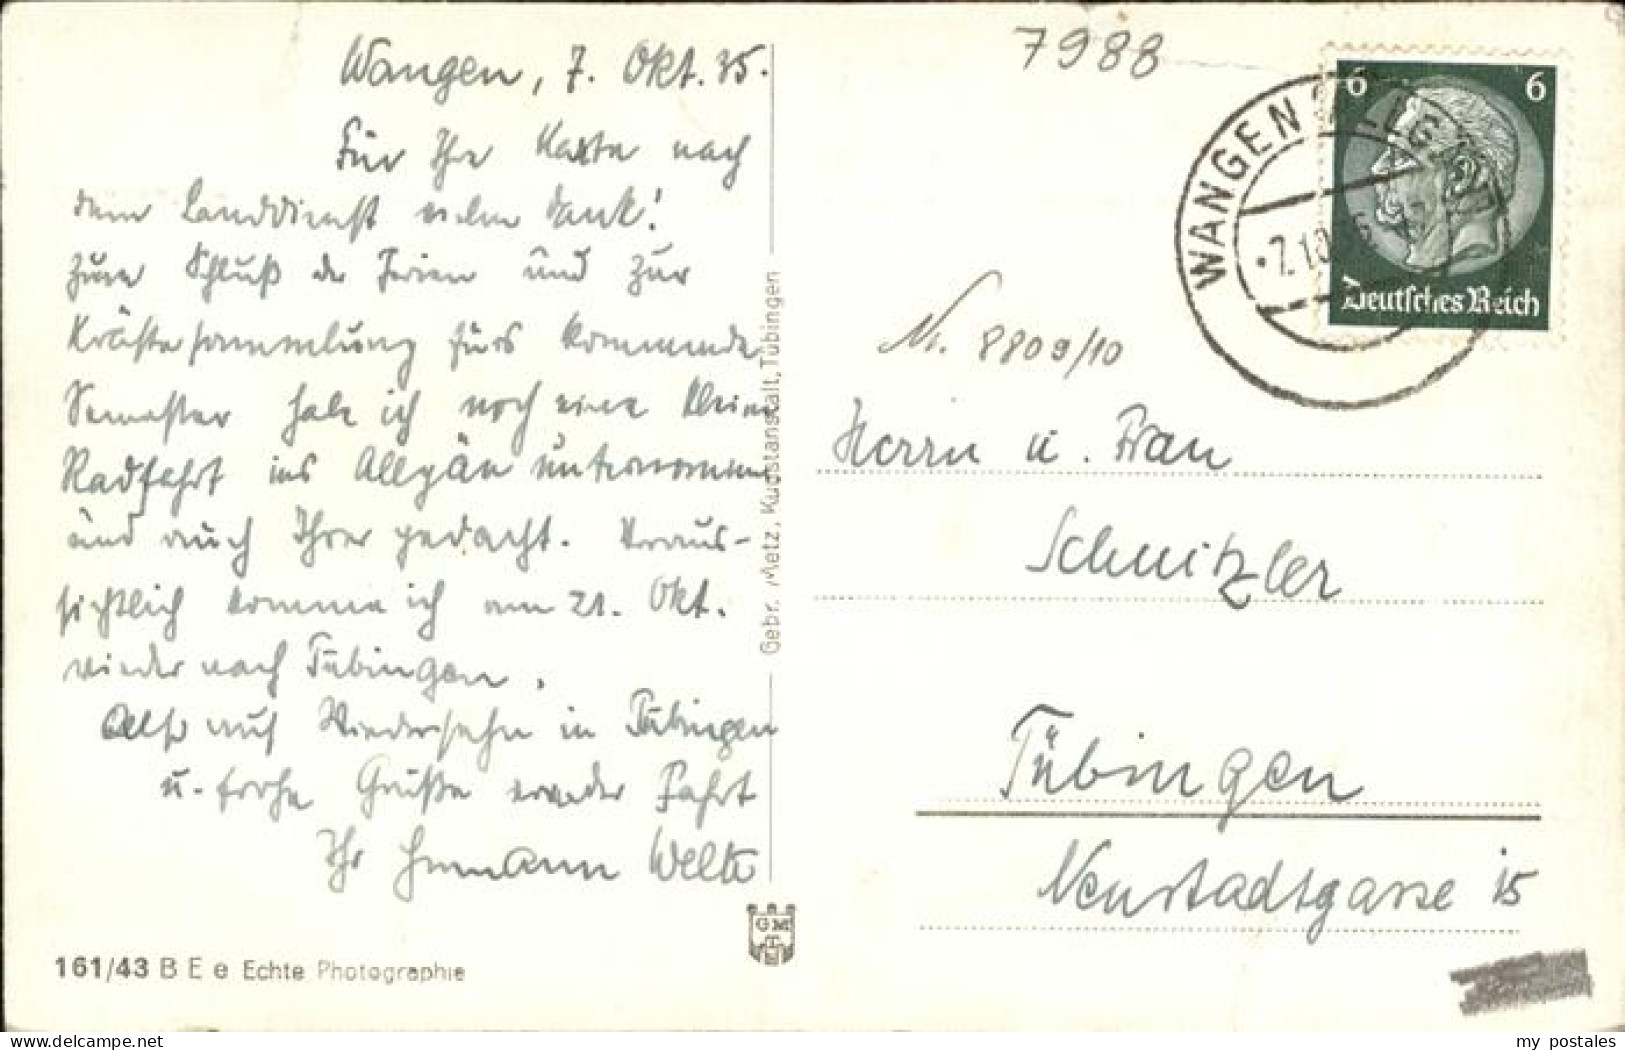 7988
Wangen, 7. Okt. 35.
Für Ihre Karte nach
dem Landdienst vielen Dank!
Zum Schluß der Ferien und zur
Kräftesammlung fürs kommende
Semester habe ich noch eine kleine
Radfahrt ins Allgäu unternommen
und auch Ihrer gedacht. Voraus-
sichtlich komme ich am 21. Okt.
wieder nach Tübingen.
Also auf Wiedersehn in Tübingen
u. frohe Grüße von der Fahrt
Ihr Hermann Welte
161/43 B E e Echte Photographie
Gebr. Metz, Kunstanstalt, Tübingen
GMT
WANGEN (ALLGÄU)
7.10.
6 6
Deutsches Reich
Nr. 8809/10
Herrn u. Frau
Schnitzler
Tübingen
Neustadtgasse 15
www.delcampe.net
my_postales